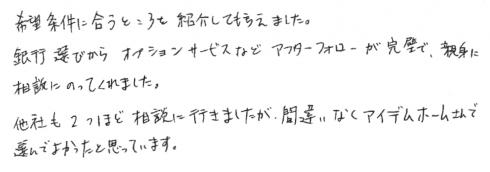 希望条件に合うところを紹介してもらえました。
銀行選びからオプションサービスなどアフターフォローが完璧で、親身に
相談にのってくれました。
他社も2つほど相談に行きましたが、間違いなくアイデムホームさんで
選んでよかったと思っています。